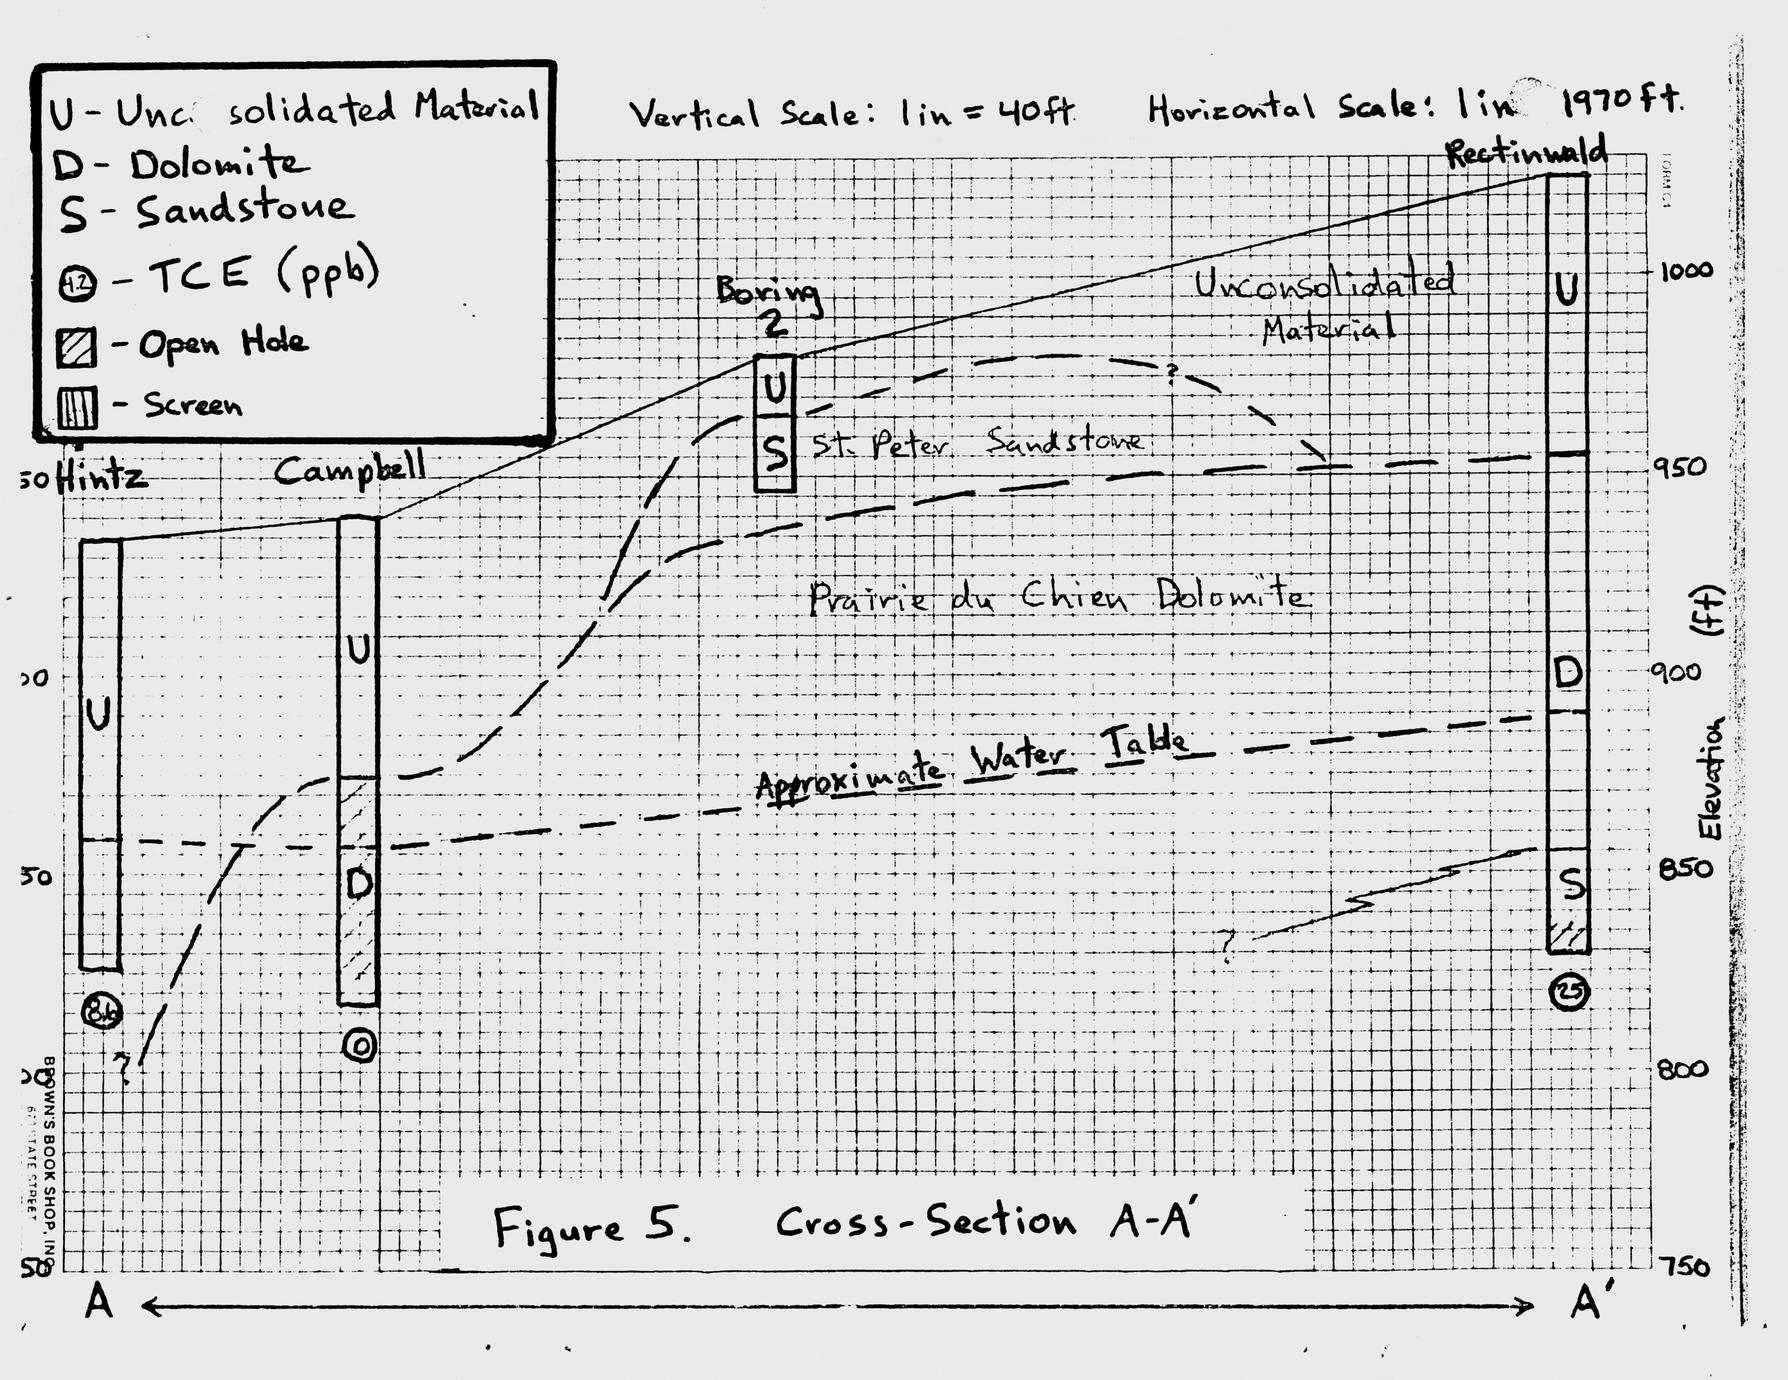 U - Unc. solidated Material
D - Dolomite
S - Sandstone
4.2 - TCE (ppb)
- Open Hole
- Screen
Vertical Scale: 1 in = 40 ft
Horizontal Scale: 1 in 1970 ft.
Rectinwald
Boring
2
Hintz
Campbell
Unconsolidated
Material
St. Peter Sandstone
Prairie du Chien Dolomite
Approximate Water Table
U
U
D
U
S
U
D
S
?
?
?
0
25
1000
950
900
850
800
750
Elevation (ft)
50
BROWN'S BOOK SHOP, INC
Figure 5. Cross-Section A-A'
A
A'